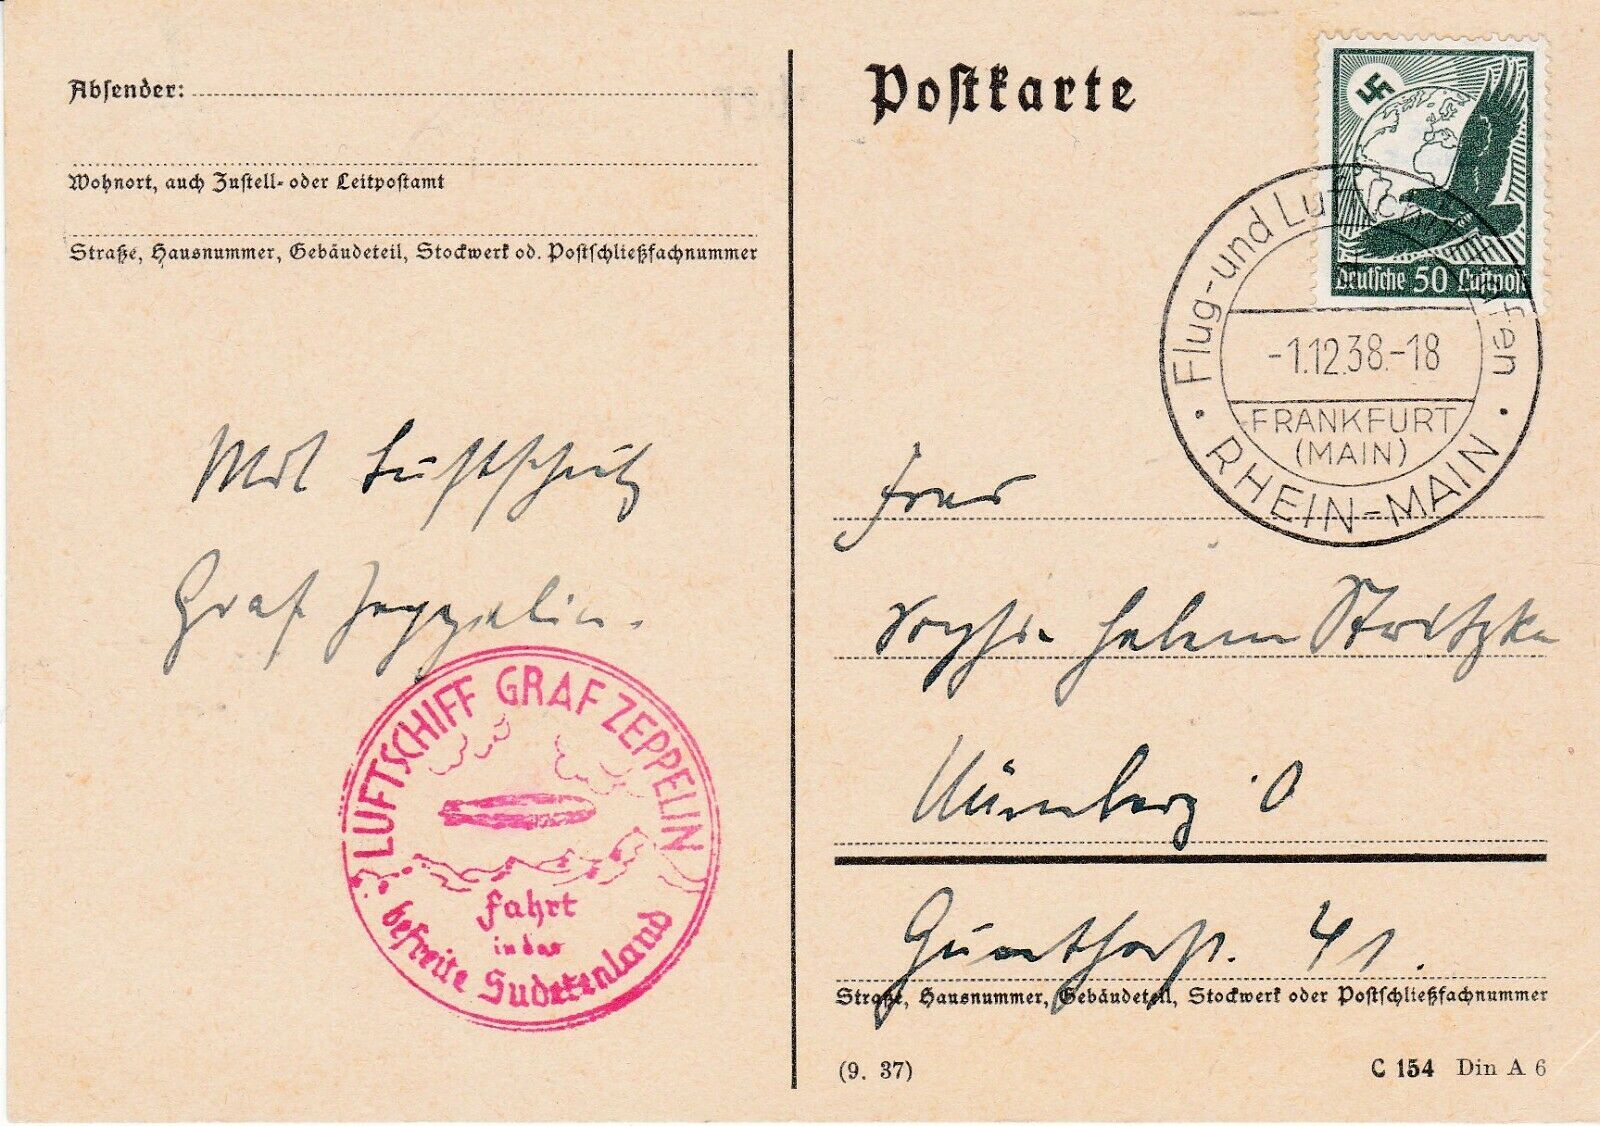 Absender:
Wohnort, auch Zustell- oder Leitpostamt
Straße, Hausnummer, Gebäudeteil, Stockwerk od. Postschließfachnummer
Mit Luftschiff
Graf Zeppelin.
LUFTSCHIFF GRAF ZEPPELIN
Fahrt
in das
befreite Sudetenland
Postkarte
Deutsche 50 Luftpost
Flug- und Luftschiffhafen
-1.12.38.-18
FRANKFURT
(MAIN)
RHEIN-MAIN
Frau
Sophie Helene Stritzke
Nürnberg O
Guntherst. 41.
Straße, Hausnummer, Gebäudeteil, Stockwerk oder Postschließfachnummer
(9. 37)
C 154 Din A 6